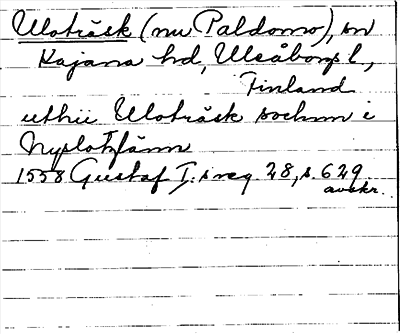 Uloträsk (nu Paldomo), sn
Kajana hd, Uleåborgs l,
Finland
uthii Uloträsk sochnn i
Nyslotzlänn
1558 Gustaf I:s reg 28, s. 629
avskr.